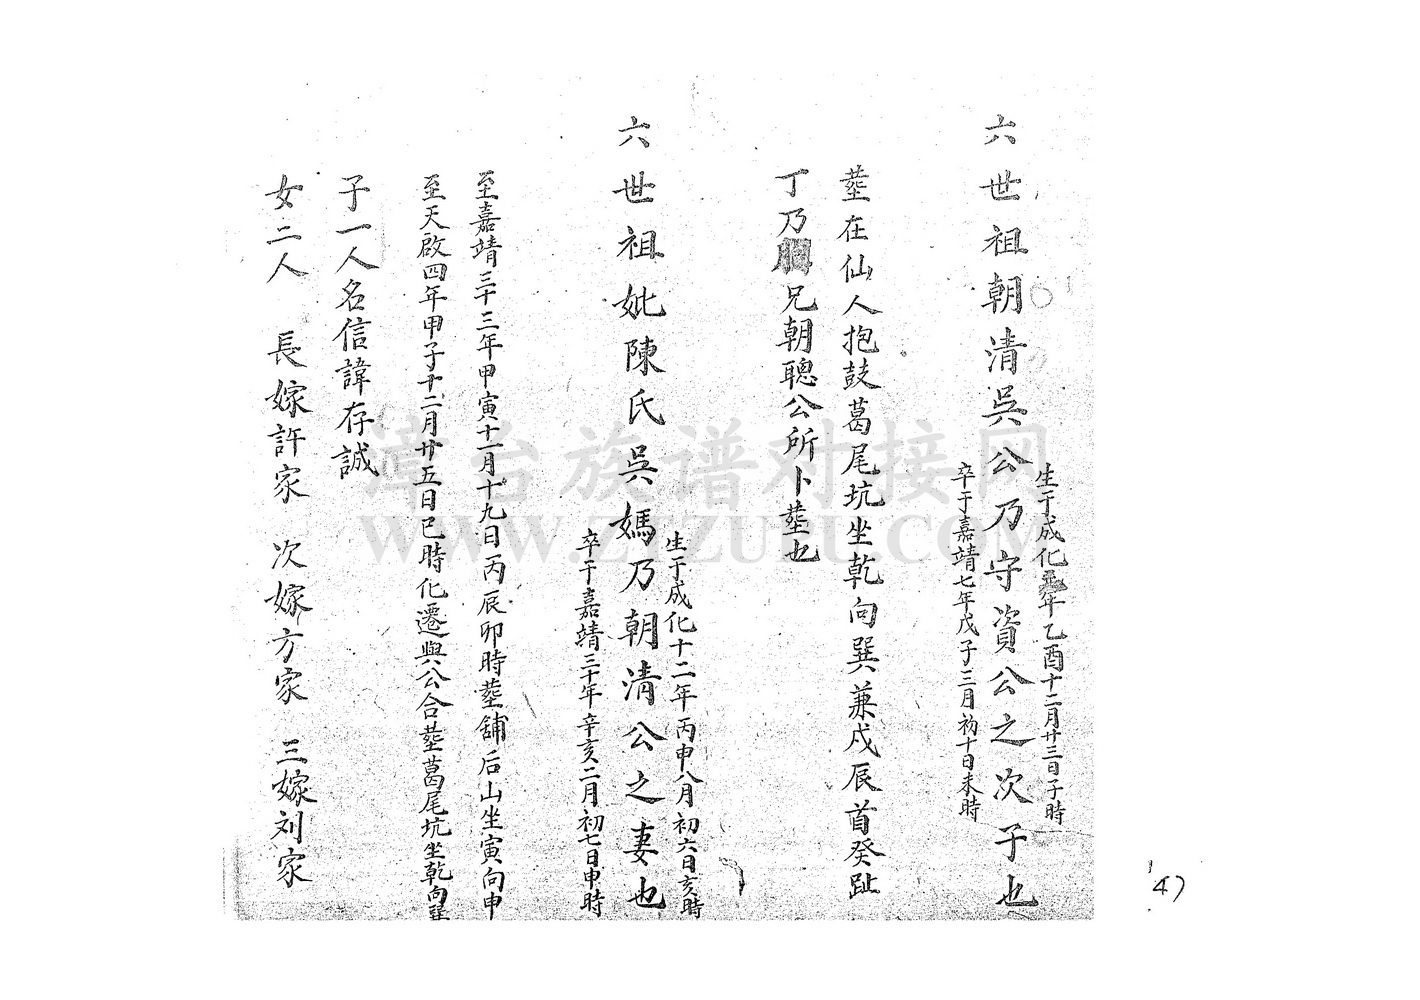 六世祖朝清吳公乃守資公之次子也
生于成化年乙酉十二月廿三日子時
卒于嘉靖七年戊子三月初十日未時
塟在仙人抱鼓葛尾坑坐乾向巽兼戌辰首癸趾
丁乃胞兄朝聰公所卜塟也
六世祖妣陳氏吳媽乃朝清公之妻也
生于成化十二年丙申八月初六日亥時
卒于嘉靖三十年辛亥二月初七日申時
至嘉靖三十三年甲寅十一月十九日丙辰卯時塟舖后山坐寅向申
至天啟四年甲子十二月廿五日巳時化遷與公合塟葛尾坑坐乾向巽
子一人名信諱存誠
女二人 長嫁許家 次嫁方家 三嫁刘家
漳台族谱对接网
www.ZTZUPU.COM
47